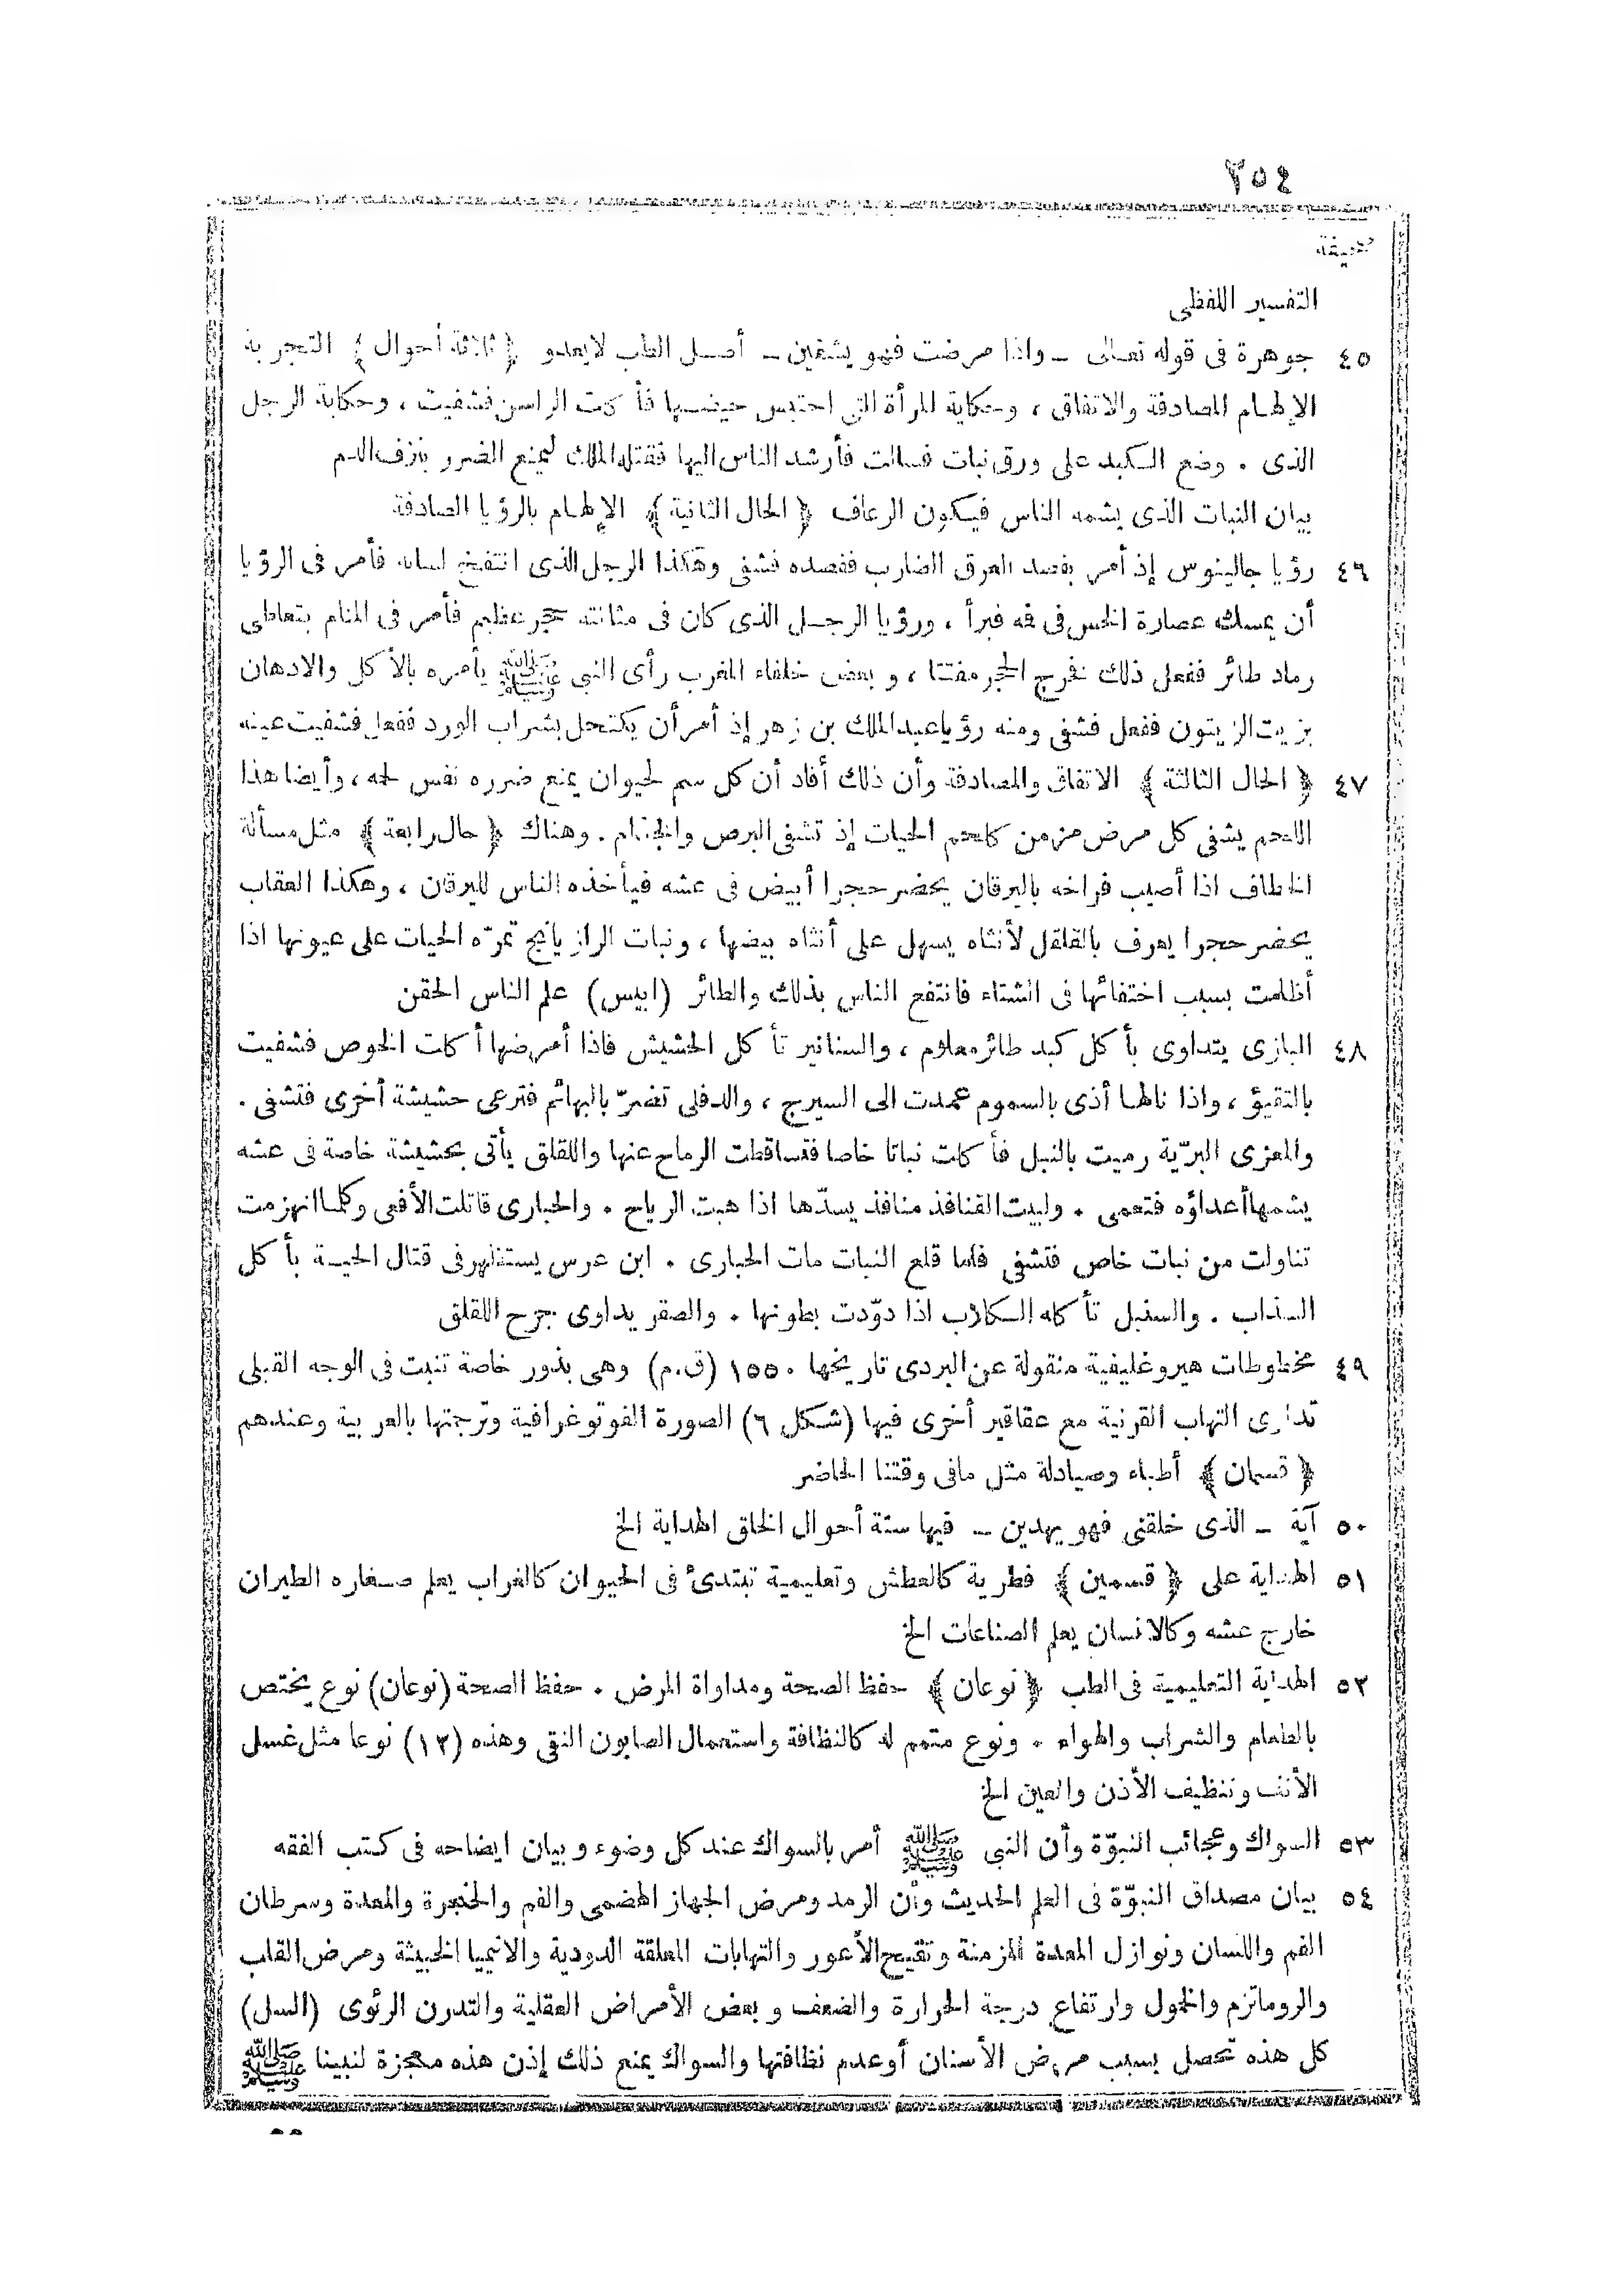 ٢٥٤
صحيفة
التفسير اللفظى
٤٥ جوهرة فى قوله تعالى ــ واذا مرضت فهو يشفين ــ أصل الطب لايعدو ﴿ ثلاثة أحوال ﴾ التجربة
الإلهام المصادفة والاتفاق ، وحكاية المرأة التى احتبس حيضها فأكلت الراسن فشفيت ، وحكاية الرجل
الذى . وضع الكبد على ورق نبات فسالت فأرشد الناس اليها فقتله الملك ليمنع الضرر بنزف الدم
بيان النبات الذى يشمه الناس فيكون الرعاف ﴿ الحال الثانية ﴾ الإلهام بالرؤيا الصادقة
٤٦ رؤيا جالينوس إذ أمر بفصد العرق الضارب ففصده فشفى وهكذا الرجل الذى انتفخ لسانه فأمر فى الرؤيا
أن يمسك عصارة الخس فى فمه فبرأ ، ورؤيا الرجل الذى كان فى مثانته حجر عظيم فأمر فى المنام بتعاطى
رماد طائر ففعل ذلك فخرج الحجر مفتتا ، وبعض خلفاء المغرب رأى النبى ﷺ يأمره بالأكل والادهان
بزيت الزيتون ففعل فشفى ومنه رؤيا عبد الملك بن زهر إذ أمر أن يكتحل بشراب الورد ففعل فشفيت عينه
٤٧ ﴿ الحال الثالثة ﴾ الاتفاق والمصادفة وأن ذلك أفاد أن كل سم لحيوان يمنع ضرره نفس لحمه ، وأيضا هذا
اللحم يشفى كل مرض مزمن كلحم الحيات إذ تشفى البرص والجذام . وهناك ﴿ حال رابعة ﴾ مثل مسألة
الخطاف اذا أصيب فراخه باليرقان يحضر حجرا أبيض فى عشه فيأخذه الناس لليرقان ، وهكذا العقاب
يحضر حجرا يعرف بالقلقل لأنثاه يسهل على أنثاه بيضها ، ونبات الرازيانج تمرّه الحيات على عيونها اذا
أظلمت بسبب اختفائها فى الشتاء فانتفع الناس بذلك والطائر (ابيس) علم الناس الحقن
٤٨ البازى يتداوى بأكل كبد طائر معلوم ، والسنانير تأكل الحشيش فاذا أمرضها أكلت الخوص فشفيت
بالتقيؤ ، واذا نالها أذى بالسموم عمدت الى السيرج ، والدفلى تضرّ بالبهائم فترعى حشيشة أخرى فتشفى .
والمعزى البرّية رميت بالنبل فأكلت نباتا خاصا فتساقطت الرماح عنها واللقلق يأتى بحشيشة خاصة فى عشه
يشمها أعداؤه فتعمى . ولبيت القنافذ منافذ يسدّها اذا هبت الرياح . والحبارى قاتلت الأفعى وكلما انهزمت
تناولت من نبات خاص فتشفى فلما قلع النبات مات الحبارى . ابن عرس يستظهر فى قتال الحية بأكل
السذاب . والسنبل تأكله الكلاب اذا دوّدت بطونها . والصقر يداوى جرح اللقلق
٤٩ مخطوطات هيروغليفية منقولة عن البردى تاريخها ١٥٥٠ (ق.م) وهى بذور خاصة تنبت فى الوجه القبلى
تداوى التهاب القرنية مع عقاقير أخرى فيها (شكل ٦) الصورة الفوتوغرافية وترجمتها بالعربية وعندهم
﴿ قسمان ﴾ أطباء وصيادلة مثل مافى وقتنا الحاضر
٥٠ آية ــ الذى خلقنى فهو يهدين ــ فيها ستة أحوال الخلق الهداية الخ
٥١ الهداية على ﴿ قسمين ﴾ فطرية كالعطش وتعليمية تبتدئ فى الحيوان كالغراب يعلم صغاره الطيران
خارج عشه وكالانسان يعلم الصناعات الخ
٥٢ الهداية التعليمية فى الطب ﴿ نوعان ﴾ حفظ الصحة ومداواة المرض . حفظ الصحة (نوعان) نوع يختص
بالطعام والشراب والهواء . ونوع متمم له كالنظافة واستعمال الصابون النقى وهذه (١٢) نوعا مثل غسل
الأنف وتنظيف الأذن والعين الخ
٥٣ السواك وعجائب النبوّة وأن النبى ﷺ أمر بالسواك عند كل وضوء وبيان ايضاحه فى كتب الفقه
٥٤ بيان مصداق النبوّة فى العلم الحديث وأن الرمد ومرض الجهاز الهضمى والفم والحنجرة والمعدة وسرطان
الفم واللسان ونوازل المعدة المزمنة وتقيح الأعور والتهابات المعلقة الدودية والانيميا الخبيثة ومرض القلب
والروماتزم والخمول وارتفاع درجة الحرارة والضعف وبعض الأمراض العقلية والتدرن الرئوى (السل)
كل هذه تحصل بسبب مرض الأسنان أوعدم نظافتها والسواك يمنع ذلك إذن هذه معجزة لنبينا ﷺ